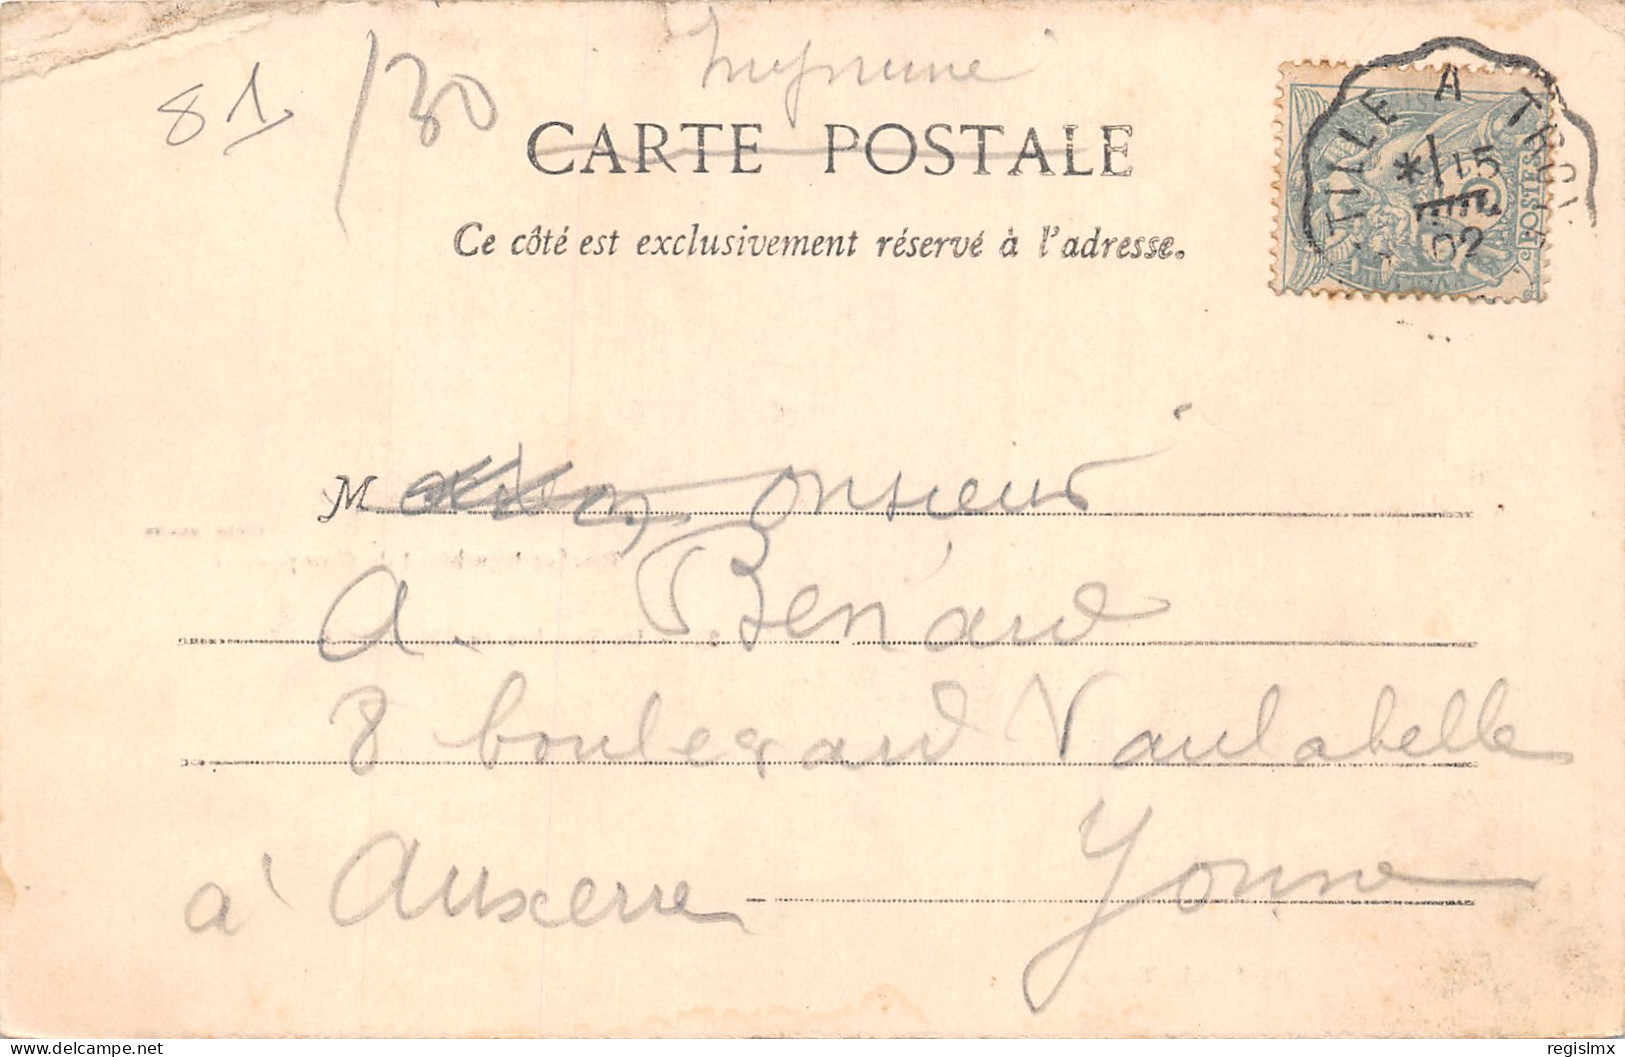 81 /30 Imprimé
CARTE POSTALE
Ce côté est exclusivement réservé à l'adresse.
TILLE A TROY
* 15
02
POSTES
M onsieur
A. Bénard
8 boulevard Vaulabelle
à Auxerre Yonne
www.delcampe.net
regislmx